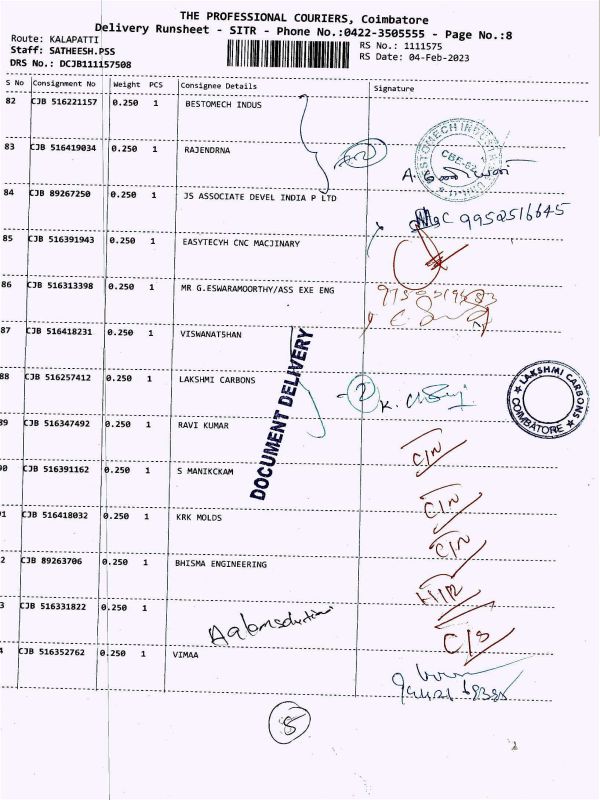 THE PROFESSIONAL COURIERS, Coimbatore
Delivery Runsheet - SITR - Phone No.:0422-3505555 - Page No.:8
Route: KALAPATTI
Staff: SATHEESH.PSS
DRS No.: DCJB111157508
RS No.: 1111575
RS Date: 04-Feb-2023
S No Consignment No Weight PCS Consignee Details Signature
82 CJB 516221157 0.250 1 BESTOMECH INDUS
83 CJB 516419034 0.250 1 RAJENDRNA
84 CJB 89267250 0.250 1 JS ASSOCIATE DEVEL INDIA P LTD
9952516645
85 CJB 516391943 0.250 1 EASYTECYH CNC MACJINARY
86 CJB 516313398 0.250 1 MR G.ESWARAMOORTHY/ASS EXE ENG
87 CJB 516418231 0.250 1 VISWANATSHAN
88 CJB 516257412 0.250 1 LAKSHMI CARBONS
LAKSHMI CARBONS
COIMBATORE
DOCUMENT DELIVERY
89 CJB 516347492 0.250 1 RAVI KUMAR C/N
90 CJB 516391162 0.250 1 S MANIKCKAM C/N
1 CJB 516418032 0.250 1 KRK MOLDS C/N
2 CJB 89263706 0.250 1 BHISMA ENGINEERING
3 CJB 516331822 0.250 1 C/S
4 CJB 516352762 0.250 1 VIMAA
8